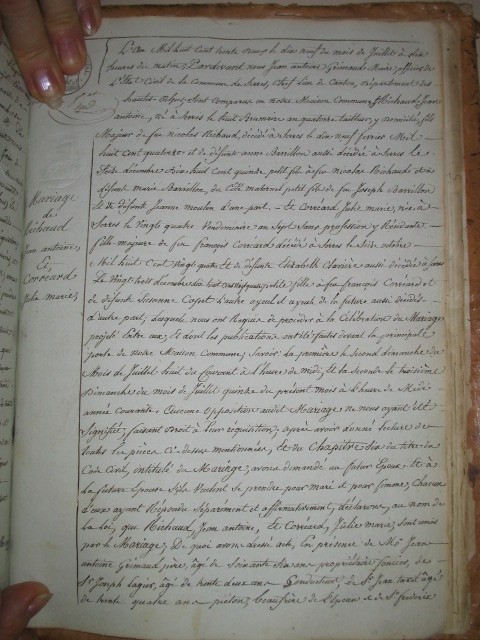 L'an Mil huit Cent trente neuf le dix neuf du mois de Juillet à dix
heures du matin, Pardevant nous Jean antoine Grimaud Maire, officier de
l'Etat Civil de la Commune de Serres, Chef lieu de Canton, département des
hautes alpes, Sont Comparus en notre Maison Commune, Richaud Jean
antoine, né à Serres le huit Brumaire an quatorze, tailleur, y domicilié, fils
Majeur de feu Nicolas Richaud, décédé à Serres le dix neuf février Mil
huit Cent quatorze et de défunte anne Barrillon aussi décédée à Serres le
décembre Dix huit Cent quinze petit fils à feu Nicolas Richaud et à
défunte marie Barrillon, du Côté maternel petit fils de feu Joseph Barrillon
Et de défunte Jeanne moulon d'une part. - Et Corréard Julie marie, née à
Serres le Vingt quatre Vendemiaire an Sept Sans profession y Résidante
fille majeure de feu françois Corréard décédé à Serres le Seize octobre
Mil huit Cent Vingt quatre Et de défunte Elizabeth Clavière aussi décédée à Serres
Le Vingt trois décembre dix huit Cent fille à feu françois Corréard et
de défunte Suzanne Copet L'autre ayeul et ayeule de la future aussi décédés
d'autre part, Lesquels nous ont Requis de procéder à la Célébration du Mariage
projeté Entre eux, Et dont les publications ont été faites devant la principale
porte de notre Maison Commune, Savoir la première le Second dimanche du
Mois de Juillet huit du Courant à l'heure de midi, Et la seconde le troisième
Dimanche du mois de Juillet quinze du présent mois à L'heure de Midi
année Courante; Aucune opposition audit Mariage ne nous ayant été
Signifiée, faisant droit à leur réquisition; après avoir donné lecture de
toutes les pièces Ci-dessus mentionnées, et du Chapitre Six du titre du
Code Civil, intitulé du Mariage, avons demandé au futur Epoux Et à
la future Epouse S'ils Veulent Se prendre pour mari et pour femme, Chacun
d'eux ayant Répondu Séparément et affirmativement, déclarons, au nom de
la loi, que Richaud, Jean antoine, et Corréard, Julie marie, Sont unis
par le Mariage; De quoi avons dressé acte, En présence de Mrs Jean
antoine Grimaud père, âgé de Soixante Six ans propriétaire foncier, de
Sr Joseph Lagier, âgé de trente deux ans Conducteur, de Sr Jean âgé
de trente quatre ans piéton, beau frère de L'époux et de Sr frédéric
Mariage
de
Richaud
Jean antoine,
Et
Corréard
Julie marie,